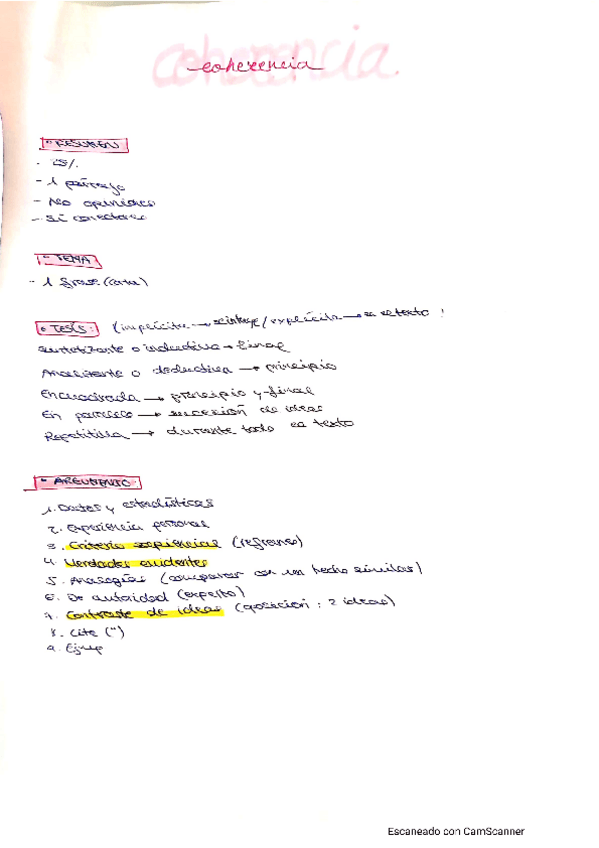 coherencia
coherencia
• RESUMEN
- 25%
- 1 párrafo
- No opiniones
- Sí conectores
- TEMA
- 1 frase (corta)
• TESIS: (implícita → / explícita → en el texto)
Sintetizante o inductiva → final
Analizante o deductiva → principio
Encuadrada → principio y final
En paralelo → sucesión de ideas
Repetitiva → durante todo el texto
- ARGUMENTO
1. Datos y estadísticas
2. Experiencia personal
3. Criterio sapiencial (refranes)
4. Verdades evidentes
5. Analogías (comparar con un hecho similar)
6. De autoridad (experto)
7. Contraste de ideas (oposición: 2 ideas)
8. Cita (")
9. Ejemp
Escaneado con CamScanner